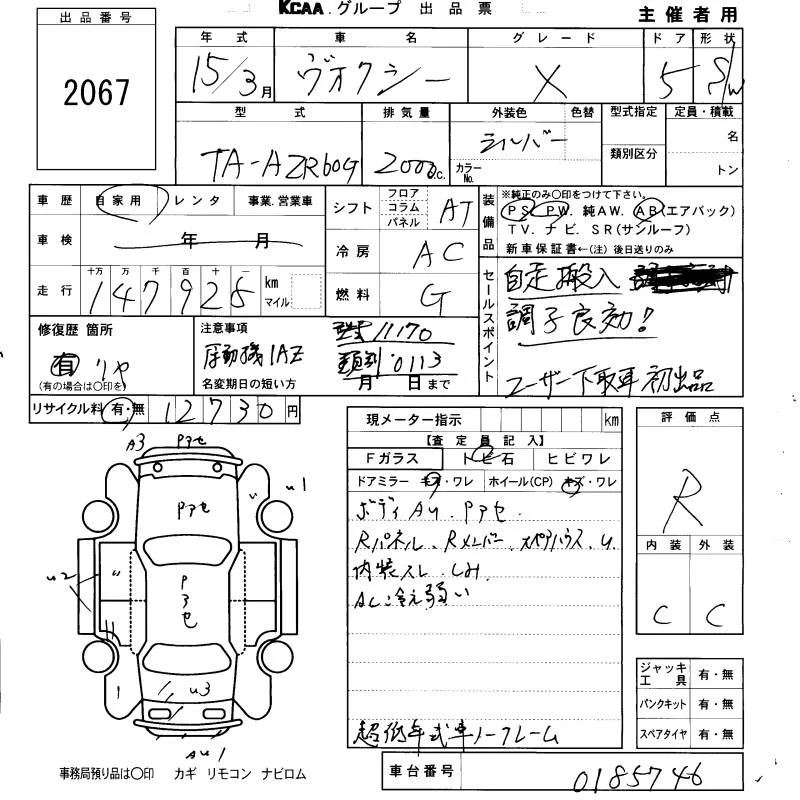 KCAA.グループ 出品票
主催者用
出品番号
2067
年式 車名 グレード ドア 形状
15/3月 ヴオクシー X 5 S/W
型式 排気量 外装色 色替 型式指定 定員・積載
名
TA-AZR60G 2000c.c. シルバー カラーNo. 類別区分
トン
車歴 自家用 レンタ 事業.営業車
車検 年 月
走行 十万 万 千 百 十 km マイル
147925
シフト フロア コラム パネル AT
冷房 AC
燃料 G
装備品
※純正のみ〇印をつけて下さい。
PS PW. 純AW. AB(エアバック)
TV. ナビ. SR(サンルーフ)
新車保証書←(注) 後日送りのみ
セールスポイント
自走搬入
調子良効!
ユーザー下取車 初出品
修復歴 箇所
有 リヤ
(有の場合は〇印を)
注意事項
原動機1AZ
型式11170
類別0113
名変期日の短い方 月 日まで
リサイクル料 有・無 12730円
現メーター指示 km
【査定員記入】
Fガラス トビ石 ヒビワレ
ドアミラー キズ・ワレ ホイール(CP) キズ・ワレ
ボディAU.Pアセ.
Rパネル、Rメンバー、スペアハウス、U.
内装スレ.しみ.
AC:冷え弱い
超低年式車ノークレーム
評価点
R
内装 外装
C C
ジャッキ工具 有・無
パンクキット 有・無
スペアタイヤ 有・無
車台番号 0185746
A3 Pアセ
u1
Pアセ
u2
Pアセ
u3
AU1
事務局預り品は〇印 カギ リモコン ナビロム